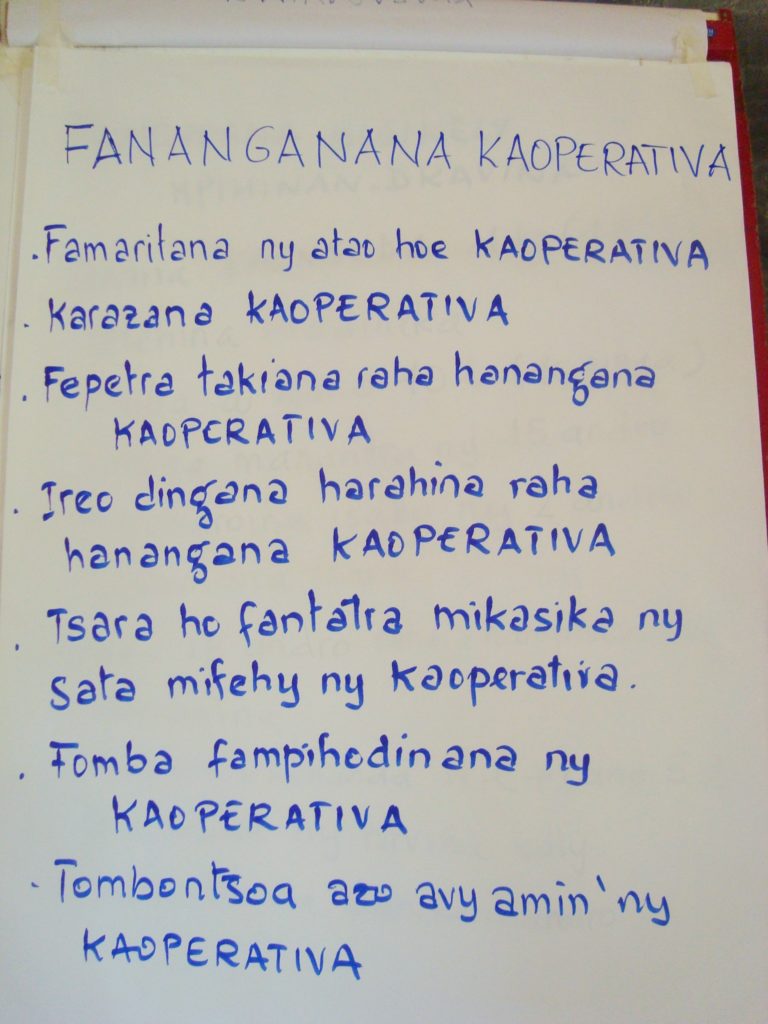 FANANGANANA KAOPERATIVA
. Famaritana ny atao hoe KAOPERATIVA
. Karazana KAOPERATIVA
. Fepetra takiana raha hanangana
KAOPERATIVA
. Ireo dingana harahina raha
hanangana KAOPERATIVA
. Tsara ho fantatra mikasika ny
Sata mifehy ny Kaoperativa.
. Fomba fampihodinana ny
KAOPERATIVA
. Tombontsoa azo avy amin'ny
KAOPERATIVA